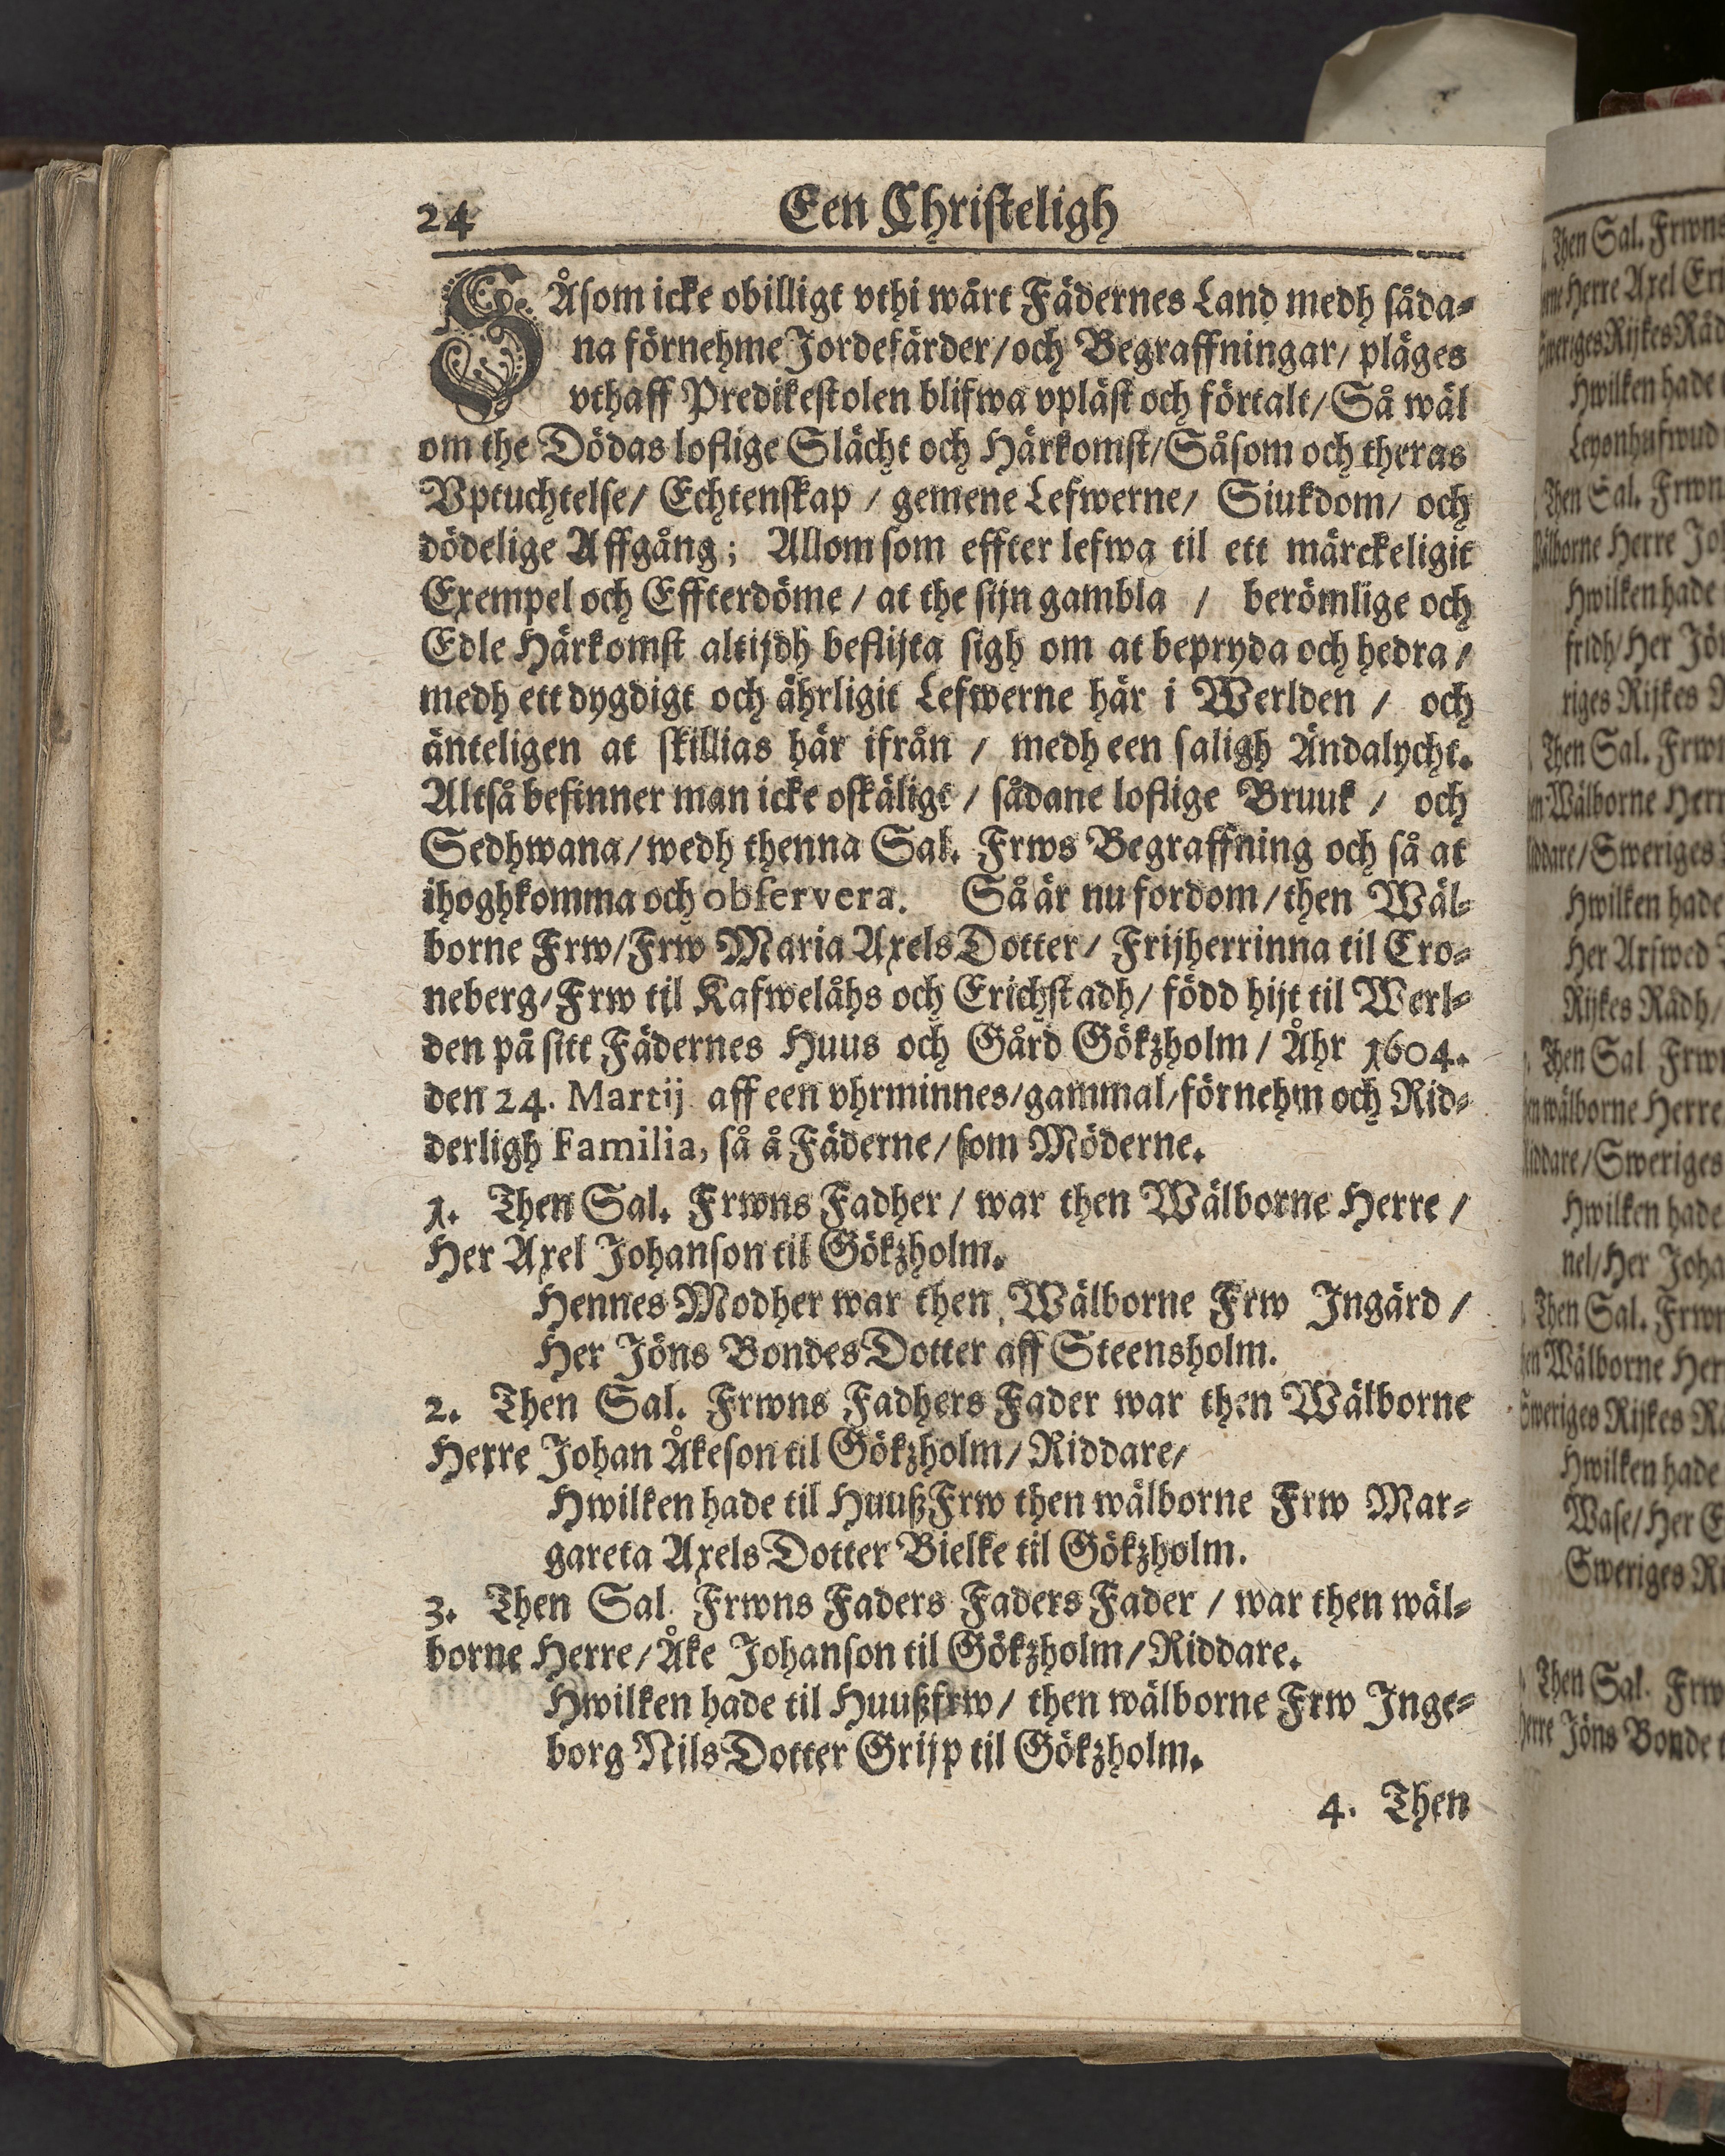 24 Een Christeligh
SÅsom icke obilligt vthi wårt Fädernes Land medh såda-
na förnehme Jordefärder/och Begraffningar/ pläges
vthaff Predikestolen blifwa vpläst och förtalt/Så wäl
om the Dödas loflige Slächt och Härkomst/Såsom och theras
Vptuchtelse/ Echtenskap / gemene Lefwerne/ Siukdom/ och
dödelige Affgång; Allom som effter lefwa til ett märckeligit
Exempel och Effterdöme / at the sijn gambla / berömlige och
Edle Härkomst altijdh beflijta sigh om at bepryda och hedra /
medh ett dygdigt och ährligit Lefwerne här i Werlden / och
änteligen at skillias här ifrån / medh een saligh Ändalycht.
Altså befinner man icke oskäligt / sådane loflige Bruuk / och
Sedhwana/wedh thenna Sal. Frws Begraffning och så at
ihoghkomma och observera. Så är nu fordom/then Wäl-
borne Frw/Frw Maria Axels Dotter/ Frijherrinna til Cro-
neberg/Frw til Kafwelåhs och Erichstadh/ född hijt til Werl-
den på sitt Fädernes Huus och Gård Gökzholm / Åhr 1604.
den 24. Martij aff een vhrminnes/gammal/förnehm och Rid-
derligh Familia, så å Fäderne/som Möderne.
1. Then Sal. Frwns Fadher / war then Wälborne Herre /
Her Axel Johanson til Gökzholm.
Hennes Modher war then Wälborne Frw Ingärd /
Her Jöns Bondes Dotter aff Steensholm.
2. Then Sal. Frwns Fadhers Fader war then Wälborne
Herre Johan Åkeson til Gökzholm/ Riddare/
Hwilken hade til Huuß Frw then wälborne Frw Mar-
gareta Axels Dotter Bielke til Gökzholm.
3. Then Sal. Frwns Faders Faders Fader / war then wäl-
borne Herre/Åke Johanson til Gökzholm/Riddare.
Hwilken hade til Huußfrw/ then wälborne Frw Inge-
borg Nils Dotter Grijp til Gökzholm.
4. Then
Then Sal. Frwns
Herre Axel
Sweriges Rijkes Råd
Hwilken hade
Leyonhufwud
Then Sal. Frwn
Wälborne Herre
Hwilken hade
fridh/Her
riges Rijkes
Then Sal. Frwn
Wälborne Herr
Sweriges
Hwilken hade
Her Arfwed
Rijkes Rådh/
Then Sal Frw
wälborne Herre
Riddare/Sweriges
Hwilken hade
nel/Her Joha
Then Sal. Frwn
Wälborne Her
Sweriges Rijkes
Hwilken hade
Wase/Her
Sweriges
Then Sal. Frw
Herre Jöns Bonde